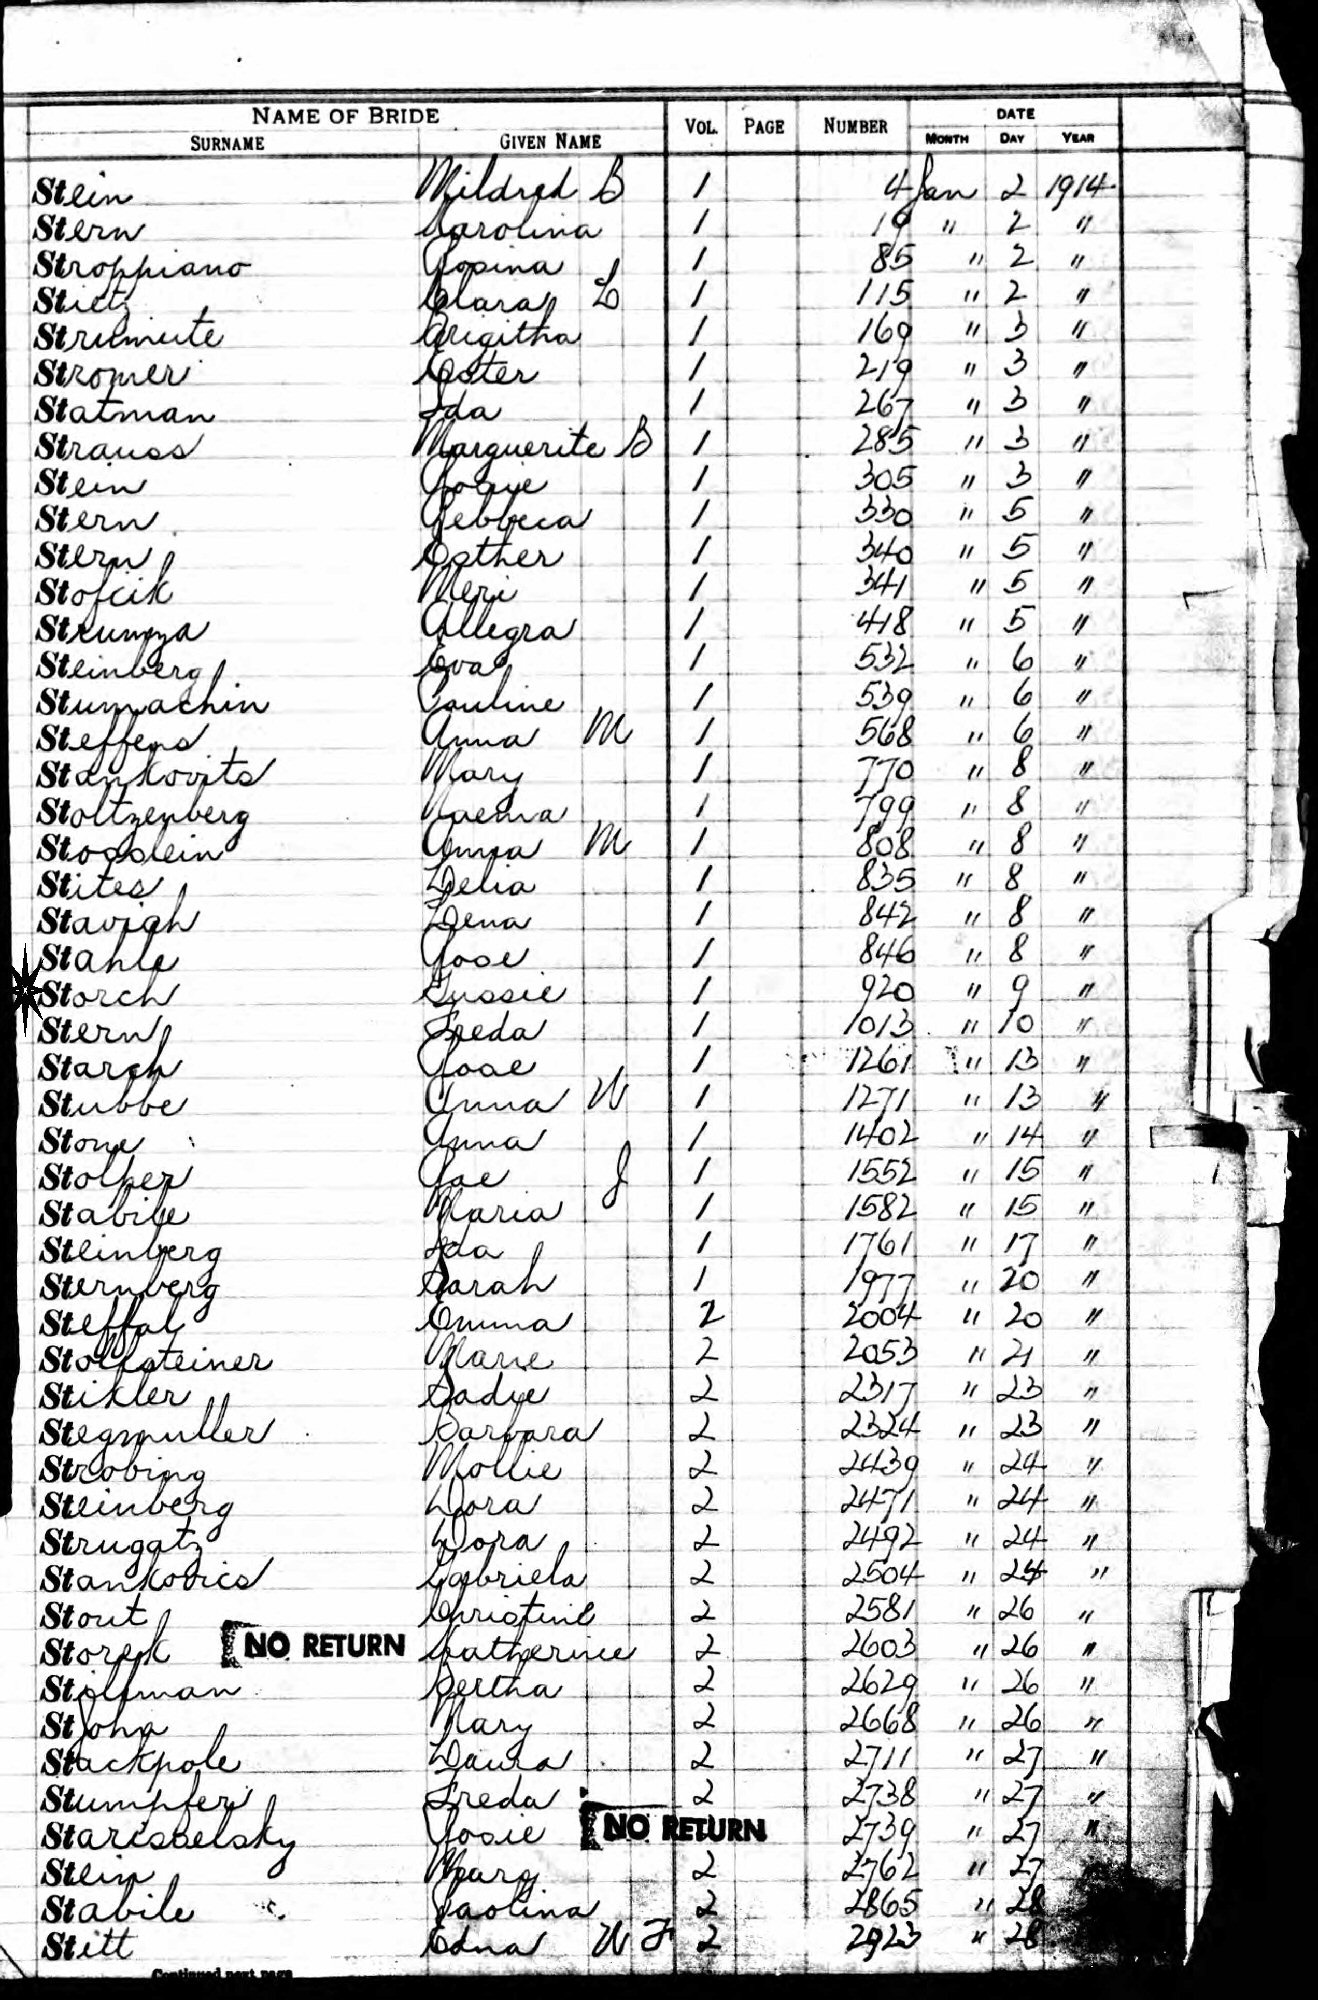 NAME OF BRIDE VOL. PAGE NUMBER DATE
SURNAME GIVEN NAME MONTH DAY YEAR
Stein Mildred B 1 4 Jan 2 1914
Stern Karolina 1 19 " 2 "
Stroppiano Rosina 1 85 " 2 "
Stietz Clara L 1 115 " 2 "
Strumute Brigitha 1 169 " 3 "
Stromer Ester 1 219 " 3 "
Statman Ida 1 267 " 3 "
Strauss Marguerite B 1 285 " 3 "
Stein 1 305 " 3 "
Stern Rebbeca 1 330 " 5 "
Stern Esther 1 340 " 5 "
Stofcik Meri 1 341 " 5 "
Strumza Allegra 1 418 " 5 "
Steinberg Eva 1 532 " 6 "
Stumachin Pauline 1 539 " 6 "
Steffens Anna M 1 568 " 6 "
Stankovits Mary 1 770 " 8 "
Stoltzenberg Naema 1 799 " 8 "
Stosslein Anna M 1 808 " 8 "
Stites Delia 1 835 " 8 "
Stavish Lena 1 842 " 8 "
Stahle Rose 1 846 " 8 "
Storch Gussie 1 920 " 9 "
Stern Freda 1 1013 " 10 "
Starch Rose 1 1261 " 13 "
Stubbe Anna W 1 1271 " 13 "
Stone Anna 1 1402 " 14 "
Stolper Rae J 1 1552 " 15 "
Stabile Maria 1 1582 " 15 "
Steinberg Ida 1 1761 " 17 "
Sternberg Sarah 1 1977 " 20 "
Steffal Emma 2 2004 " 20 "
Stolksteiner Marie 2 2053 " 21 "
Stikler Sadie 2 2317 " 23 "
Stegmuller Barbara 2 2324 " 23 "
Strobing Mollie 2 2439 " 24 "
Steinberg Dora 2 2471 " 24 "
Strugatz Dora 2 2492 " 24 "
Stankovics Gabriela 2 2504 " 24 "
Stout Christine 2 2581 " 26 "
Storek NO RETURN Katherine 2 2603 " 26 "
Stollman Bertha 2 2629 " 26 "
St John Mary 2 2668 " 26 "
Stackpole Laura 2 2711 " 27 "
Stumpfer Freda 2 2738 " 27 "
Starisselsky Rosie NO RETURN 2739 " 27 "
Stein Mary 2 2762 " 27
Stabile Paolina 2 2865 " 28
Stitt Edna W F 2 2923 " 28
Continued next page